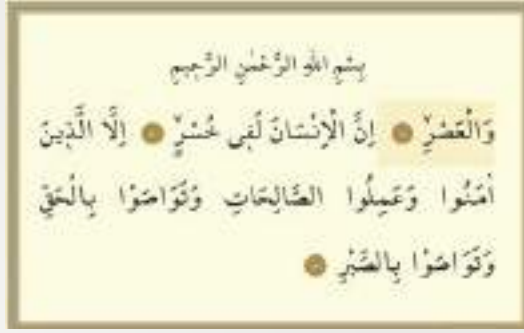 بِسْمِ اللهِ الرَّحْمٰنِ الرَّحِيمِ
وَالْعَصْرِۙ إِنَّ الْاِنْسَانَ لَفِى خُسْرٍۙ اِلَّا الَّذِينَ
اٰمَنُوا وَعَمِلُوا الصَّالِحَاتِ وَتَوَاصَوْا بِالْحَقِّ
وَتَوَاصَوْا بِالصَّبْرِ